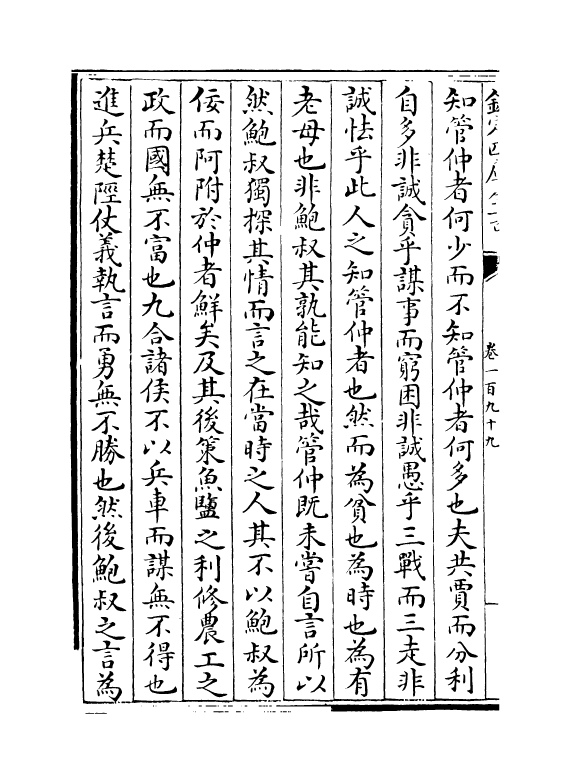 欽定四庫全書
卷一百九十九
知管仲者何少而不知管仲者何多也夫共賈而分利
自多非誠貪乎謀事而窮困非誠愚乎三戰而三走非
誠怯乎此人之知管仲者也然而為貧也為時也為有
老母也非鮑叔其孰能知之哉管仲既未嘗自言所以
然鮑叔獨探其情而言之在當時之人其不以鮑叔為
佞而阿附於仲者鮮矣及其後策魚鹽之利修農工之
政而國無不富也九合諸侯不以兵車而謀無不得也
進兵楚陘仗義執言而勇無不勝也然後鮑叔之言為